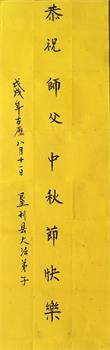 恭祝師父中秋節快樂
戊戌年古歷八月十一日
墾利县大法弟子